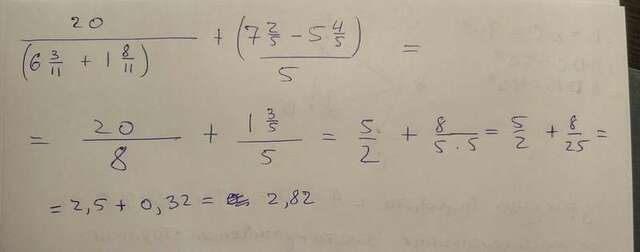 20/(6 3/11 + 1 8/11) + (7 2/5 − 5 4/5)/5 =
= 20/8 + 1 3/5/5 = 5/2 + 8/5·5 = 5/2 + 8/25 =
= 2,5 + 0,32 = 2,82